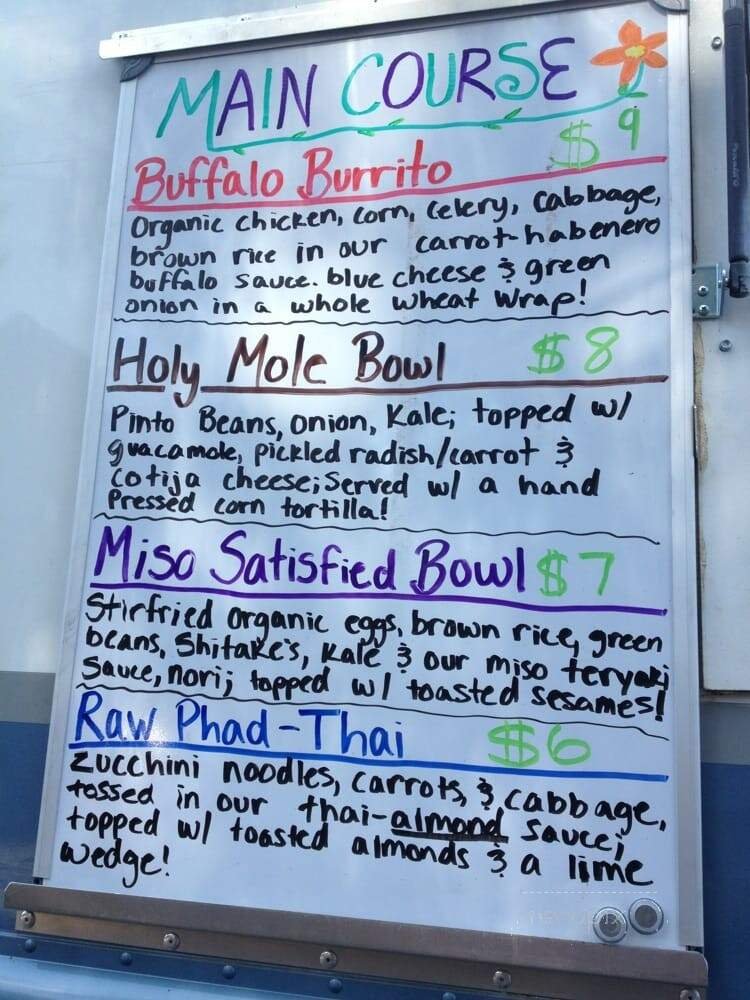 MAIN COURSE
$9
Buffalo Burrito
Organic chicken, corn, celery, cabbage,
brown rice in our carrot-habenero
buffalo sauce. blue cheese & green
onion in a whole wheat wrap!
Holy Mole Bowl $8
Pinto Beans, onion, Kale; topped w/
guacamole, pickled radish/carrot &
cotija cheese; Served w/ a hand
Pressed corn tortilla!
Miso Satisfied Bowl $7
Stirfried organic eggs, brown rice, green
beans, Shitake's, Kale & our miso teryaki
Sauce, nori; topped w/ toasted sesames!
Raw Phad-Thai $6
Zucchini noodles, carrots, & cabbage,
tossed in our thai-almond sauce;
topped w/ toasted almonds & a lime
wedge!